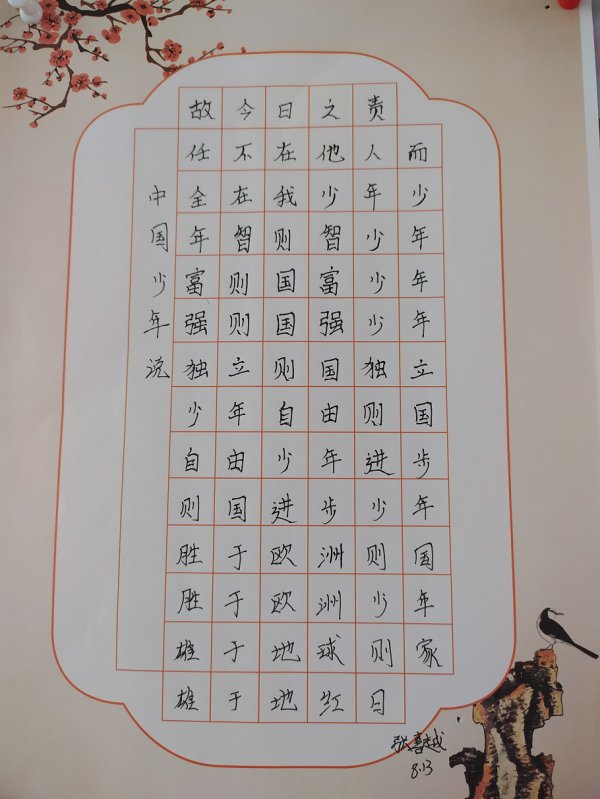 中国少年说
故今日之责
任不在他人而
全在我少年少
年智则智少年
富则国富少年
强则国强少年
独立则国独立
少年自由则国
自由少年进步
则国进步少年
胜于欧洲则国
胜于欧洲少年
雄于地球则家
雄于地红日
张喜越
8.13